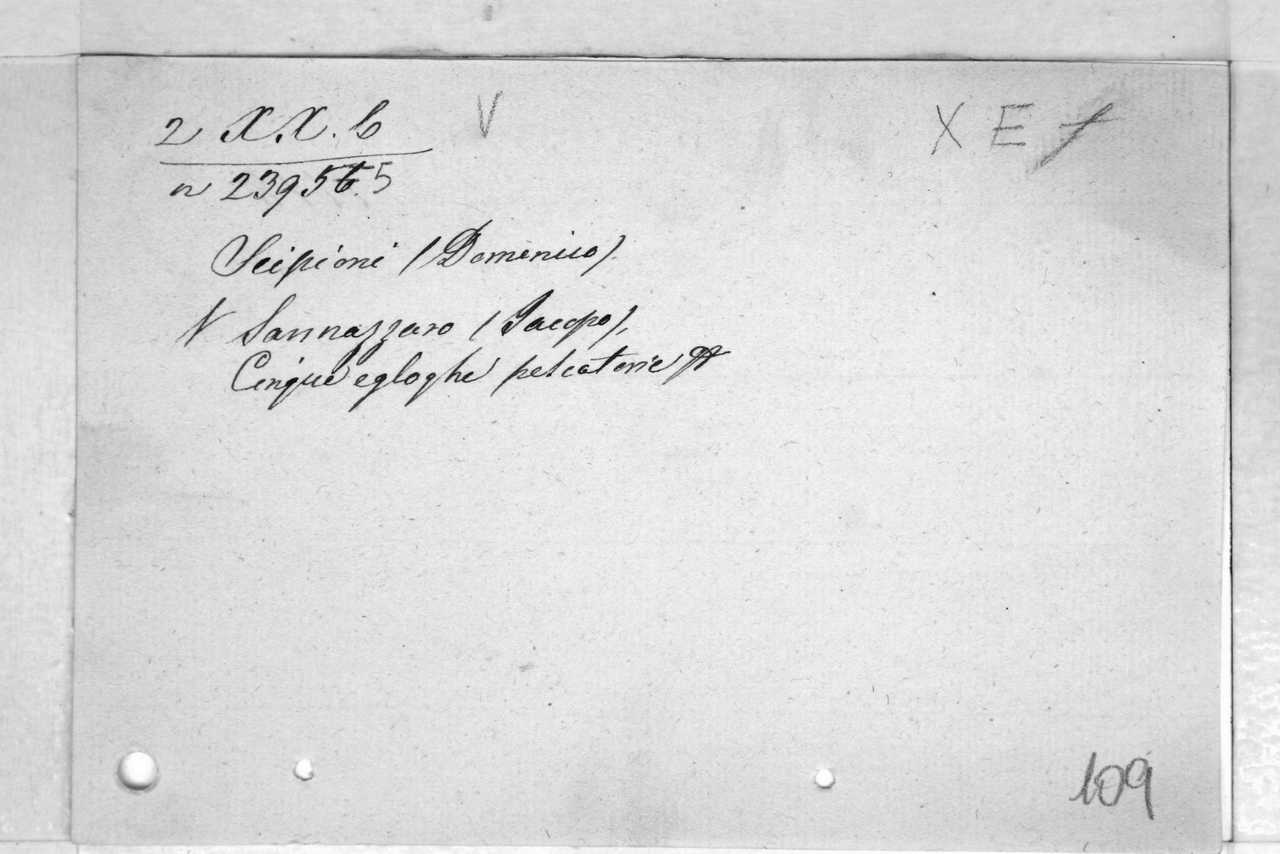 2 XX.b V X E f
n 23956.5
Scipioni (Domenico).
V Sannazzaro (Jacopo),
Cinque egloghe pescatorie
109